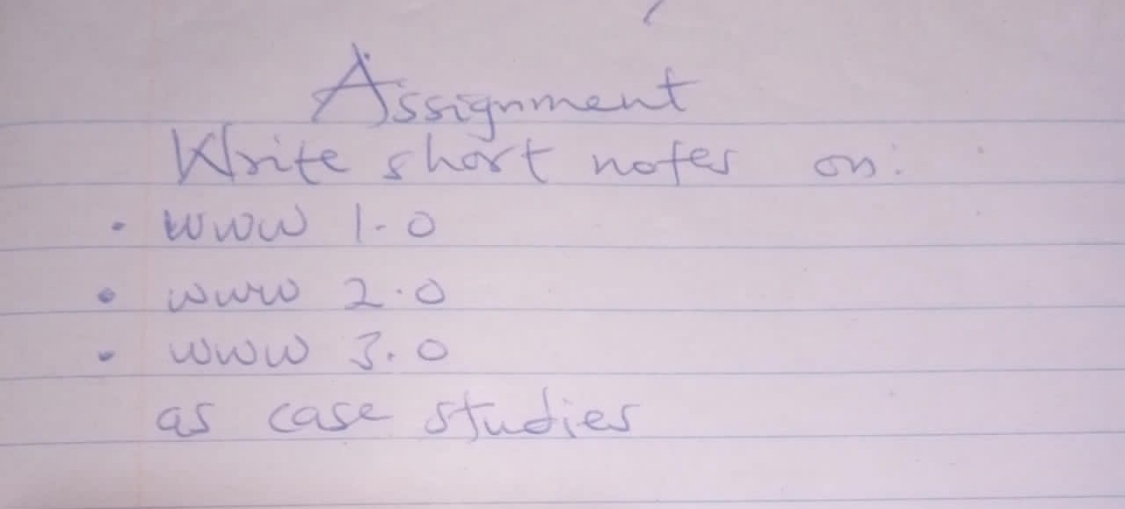 Assignment
Write short notes on:
• WWW 1.0
• WWW 2.0
• WWW 3.0
as case studies